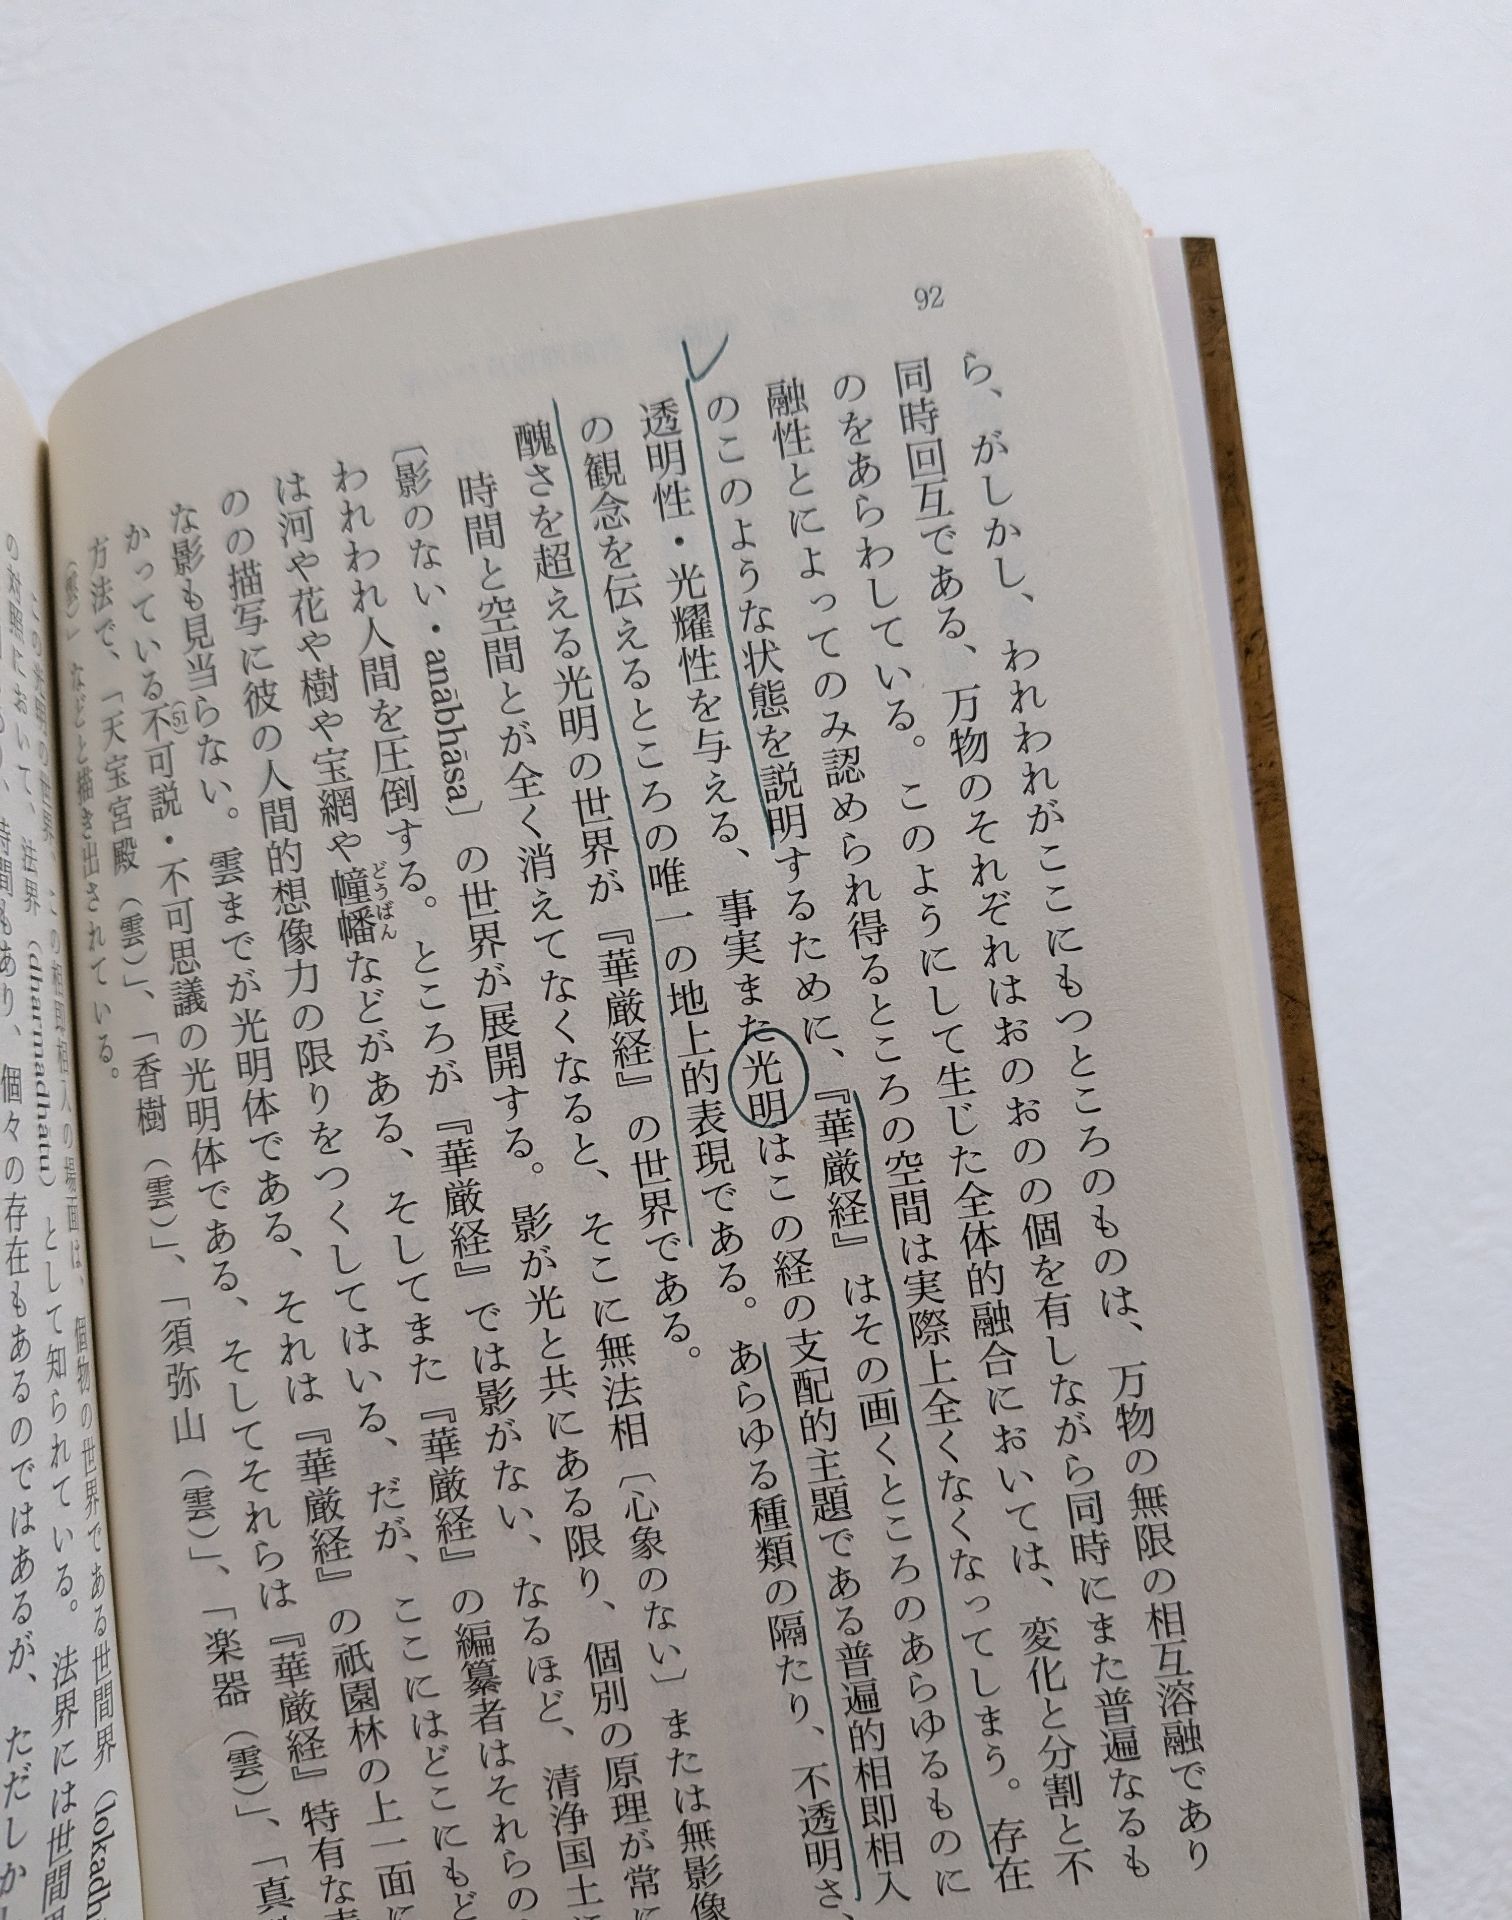 92
ら、がしかし、われわれがここにもつところのものは、万物の無限の相互溶融であり
同時回互である、万物のそれぞれはおのおのの個を有しながら同時にまた普遍なるも
のをあらわしている。このようにして生じた全体的融合においては、変化と分割と不
融性とによってのみ認められ得るところの空間は実際上全くなくなってしまう。存在
のこのような状態を説明するために、『華厳経』はその画くところのあらゆるものに
透明性・光耀性を与える、事実また光明はこの経の支配的主題である普遍的相即相入
の観念を伝えるところの唯一の地上的表現である。あらゆる種類の隔たり、不透明さ、
醜さを超える光明の世界が『華厳経』の世界である。
時間と空間とが全く消えてなくなると、そこに無法相〔心象のない〕または無影像
〔影のない・anābhāsa〕の世界が展開する。影が光と共にある限り、個別の原理が常に
われわれ人間を圧倒する。ところが『華厳経』では影がない、なるほど、清浄国土に
は河や花や樹や宝網や幢幡などがある、そしてまた『華厳経』の編纂者はそれらの
どうばん
のの描写に彼の人間的想像力の限りをつくしてはいる、だが、ここにはどこにも
な影も見当らない。雲までが光明体である、それは『華厳経』の祇園林の上一面に
かっている不可説・不可思議の光明体である、そしてそれらは『華厳経』特有な
(51)
方法で、「天宝宮殿（雲）」、「香樹（雲）」、「須弥山（雲）」、「楽器（雲）」、「真
（雲）」などと描き出されている。
この光明の世界、この相即相入の場面は、個物の世界である世間界（lokadh
の対照において、法界（dharmadhātu）として知られている。法界には世間
時間もあり、個々の存在もあるのではあるが、ただしか